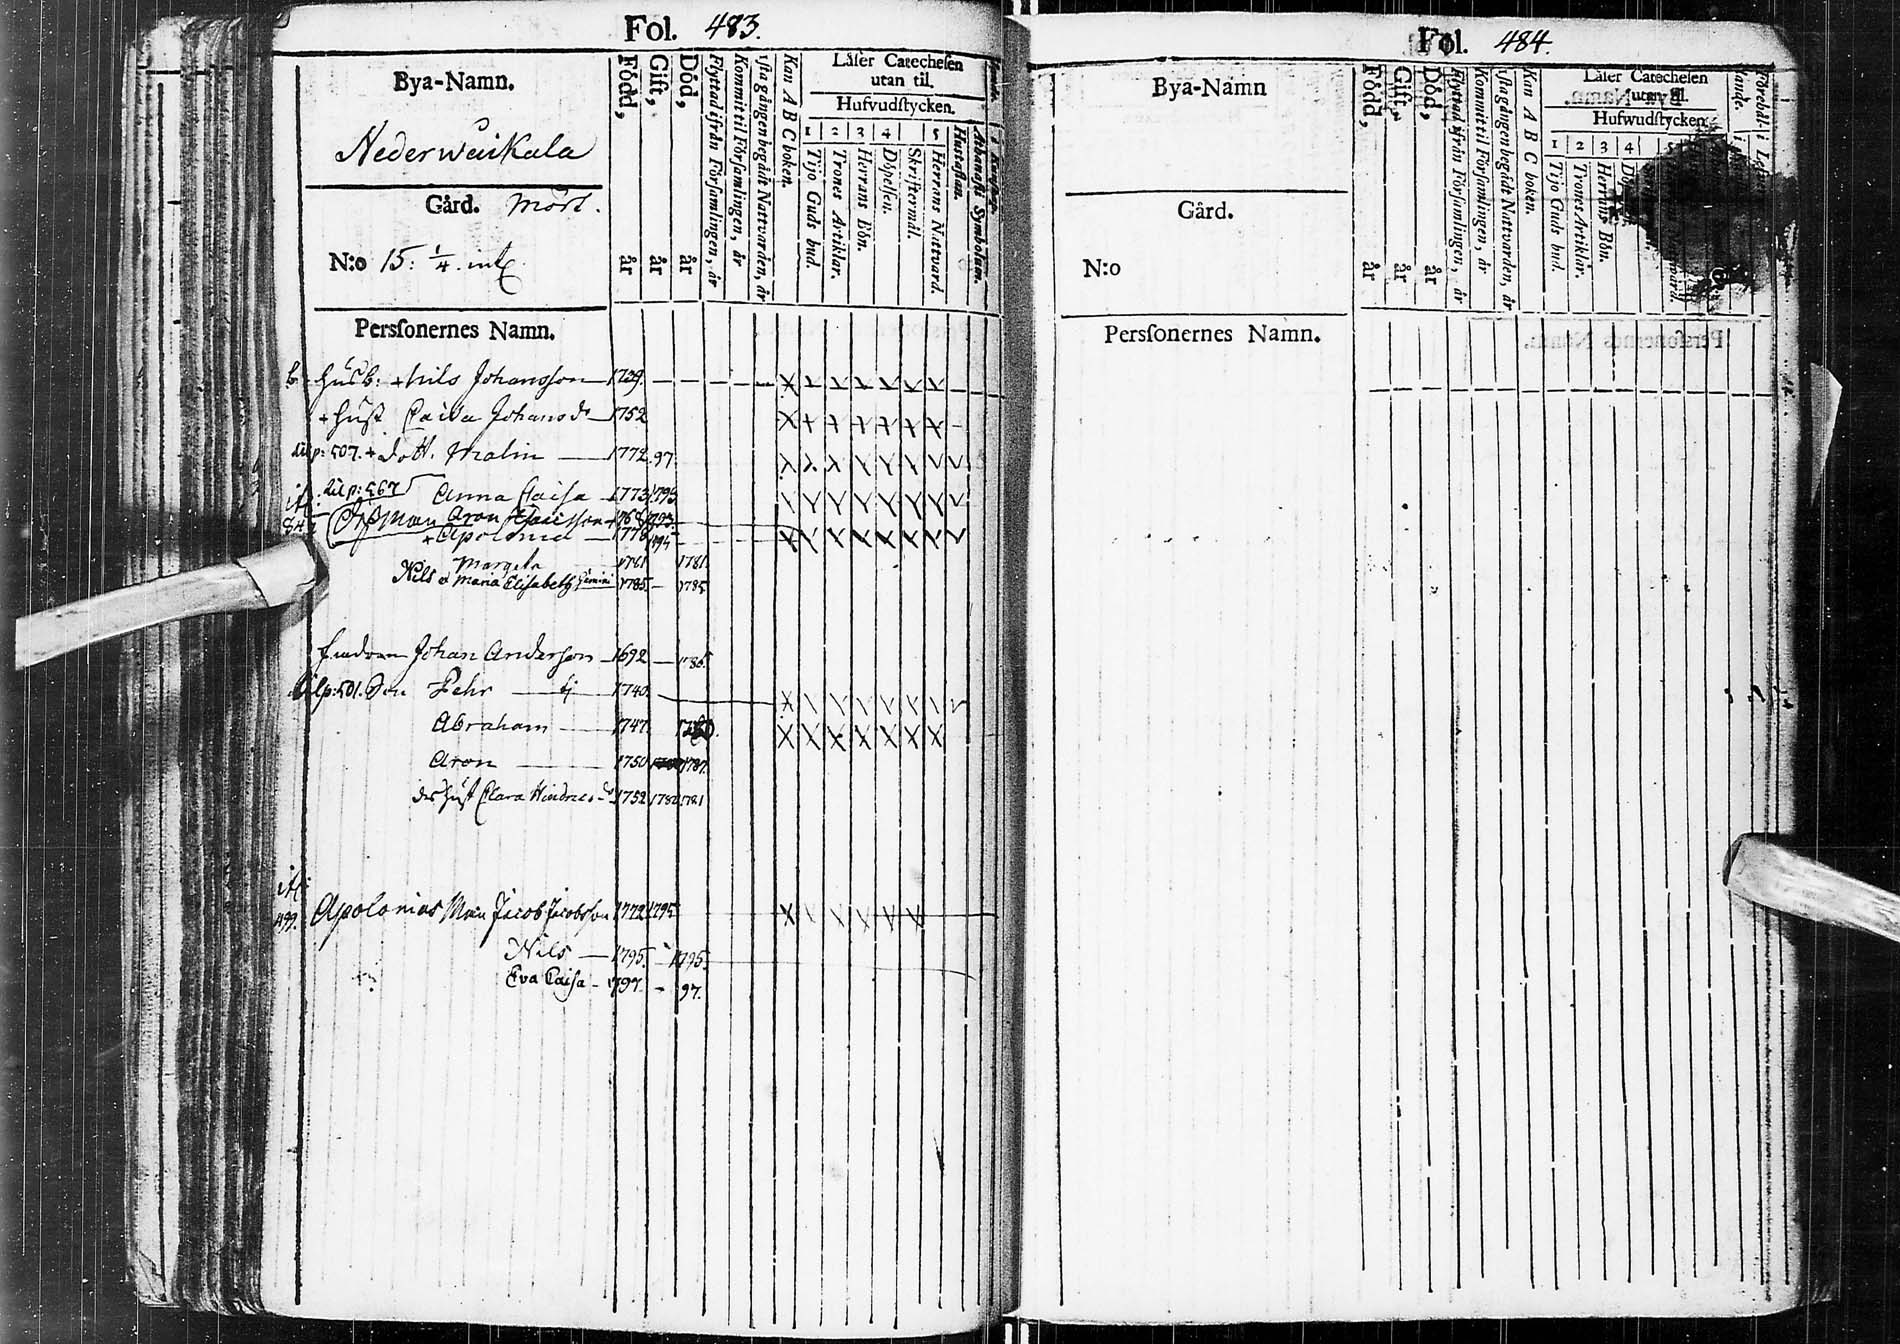 Fol. 483.
Bya-Namn.
Nederweikala
Gård. Mört.
N:o 15: 1/4. mtl.
Född, år
Gift, år
Död, år
Flyttad ifrån Församlingen, år
Kommit til Församlingen, år
Kan A B C boken.
Läser Catechesen
utan til.
Hufvudstycken.
1 2 3 4 5
Tijo Guds bud.
Trones Artiklar.
Herrans Bön.
Döpelsen.
Skriftermål.
Herrans Nattvard.
Hustaflan.
Athanasii Symbolum.
Personernes Namn.
b Husb: + Nils Johansson 1729.
+ Hust Caisa Johansdr 1752
dito p: 507. + dott. Malin 1772. 97.
Anna Caisa 1773 1795
Aron 1768 1793.
+ Apolonia 1778 1794
Margeta 1781 1781.
Nils & Maria Elisabeth Gemini 1785 1785
Johan Anderson 1692 1786.
Son Pehr 1740.
Abraham 1747.
Aron 1750 1787.
des Hust Clara Hindrics dr 1752 1780 1781
499. Apolonias Man Jacob Jacobsson 1772 1795
Nils 1795. 1795.
Eva Caisa 1797. 97.
Fol. 484.
Bya-Namn
Gård.
N:o
Född, år
Gift, år
Död, år
Flyttad ifrån Församlingen, år
Kommit til Församlingen, år
Kan A B C boken.
Läser Catechesen
utan til.
Hufwudstycken
1 2 3 4 5
Tijo Guds bud.
Trones Artiklar.
Herrans Bön.
Personernes Namn.